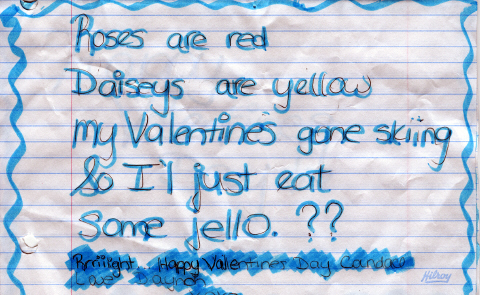 Roses are red
Daiseys are yellow
my Valentine's gone skiing
So I'l just eat
some jello. ??
Happy Valentines Day Candace
Love
Hilroy